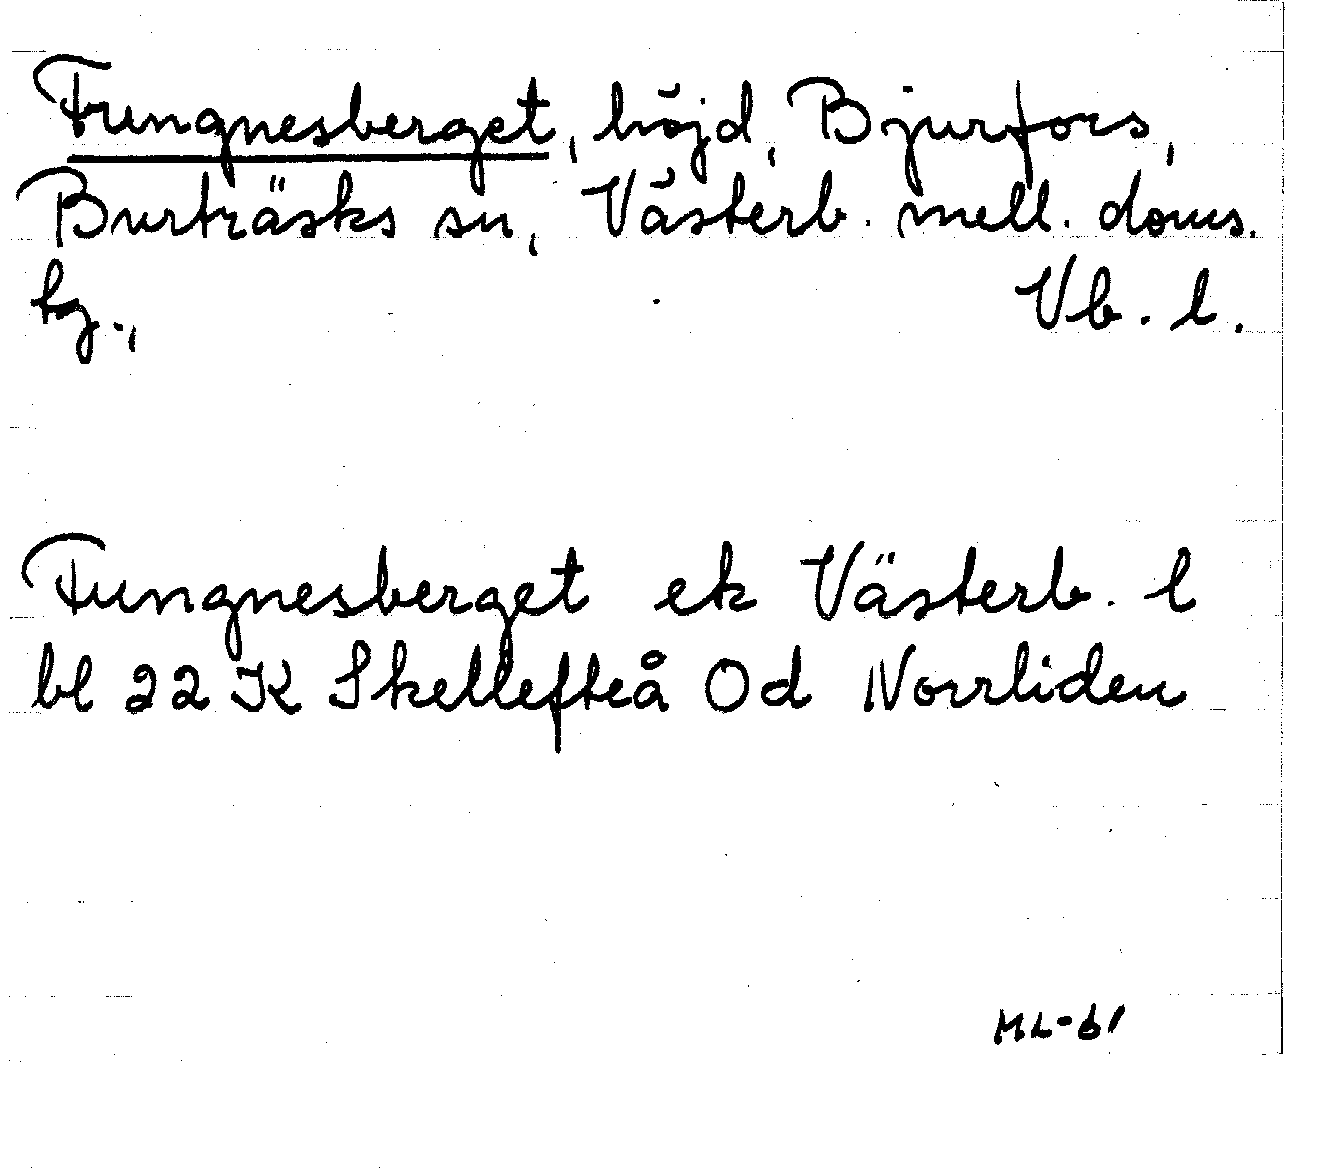 Fungnesberget, höjd, Bjurfors,
Burträsks sn, Västerb. mell. doms.
hg., Vb. l.
Fungnesberget ek Västerb. l
bl 22 K Skellefteå Od Norrliden
ML-61